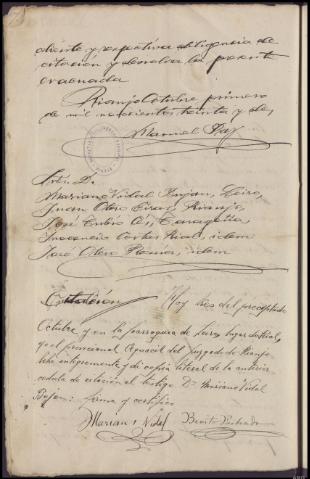 diente y respectiva diligencia de
citación y devolverla presente
evacuada
Rianjo Octubre primero
de mil novecientos treinta y dos
Manuel
Srs. D.
Mariano Vidal Pujan, Leiro,
Juan Otero Rianjo,
José Tubío Taragoña,
Inocencio Rial, idem
José Otero Romero, idem
Citación Hoy tres del precitado
Octubre y en la parroquia de Leiro lugar de Rial,
yo el Alguacil del Juzgado de Rianjo
leí integramente y dí copia literal de la anterior
cédula de citación al testigo Dn Mariano Vidal
Pujan: firma y certifico
Mariano Vidal Benito